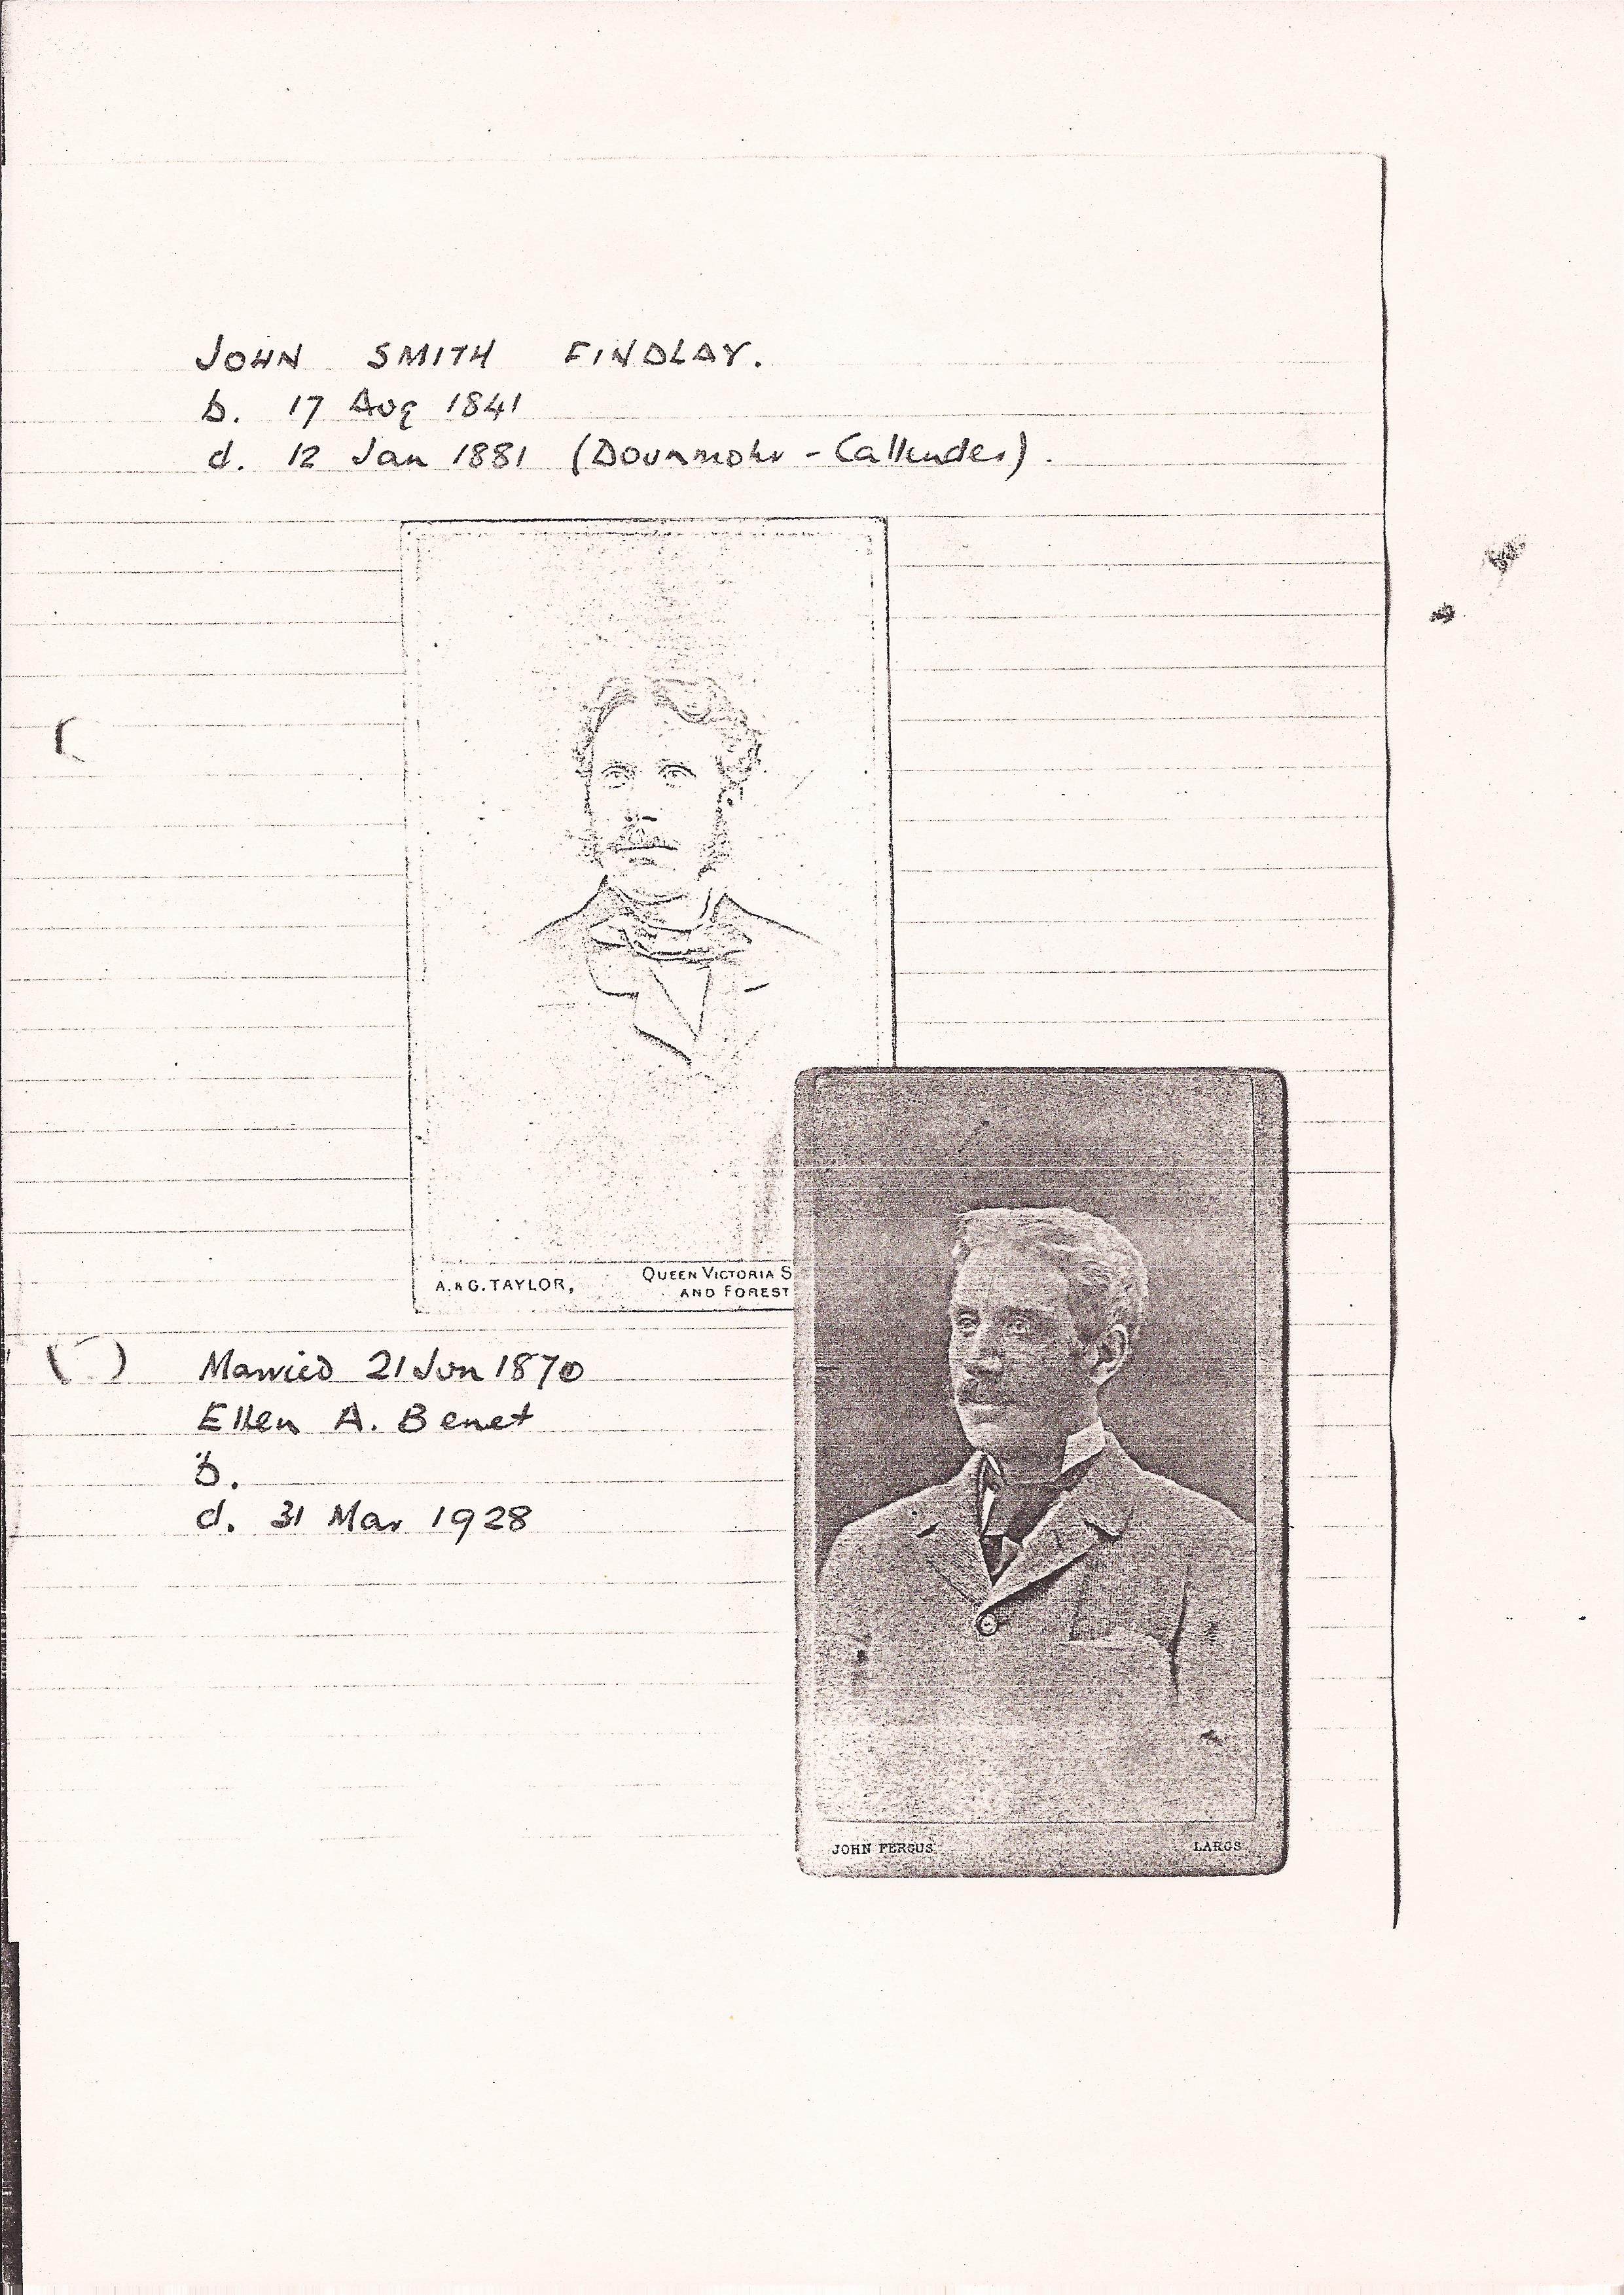 JOHN SMITH FINDLAY.
b. 17 Aug 1841
d. 12 Jan 1881 (Dounmohr - Callender).
A. & G. TAYLOR,
QUEEN VICTORIA S
AND FOREST
Married 21 Jun 1870
Ellen A. Benet
b.
d. 31 Mar 1928
JOHN FERGUS
LARGS